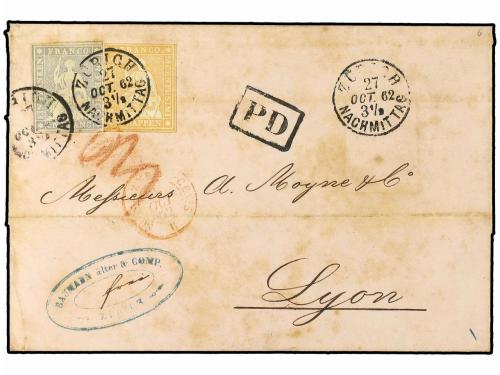 FRANCO
FRANCO
ZÜRICH
27
OCT. 62
3½
NACHMITTAG
ZÜRICH
27
OCT. 62
3½
NACHMITTAG
PD
Messieurs A. Moyne & Co
Lyon
BAUMANN älter & COMP.
frei
ZÜRICH